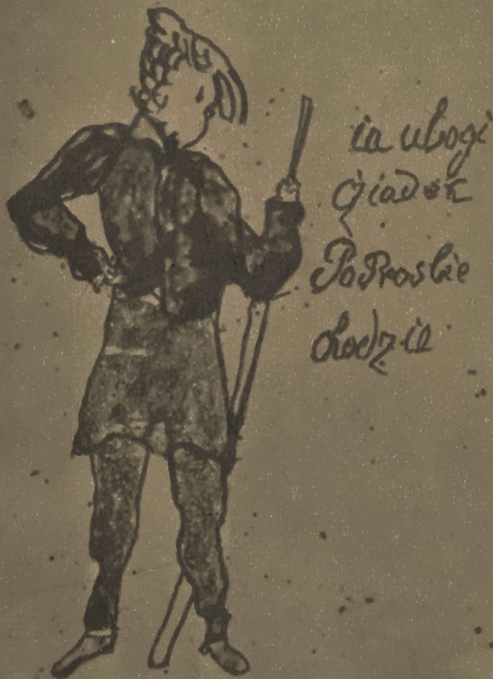 ia ubogi
dziadek
Po Prosbie
chodzie